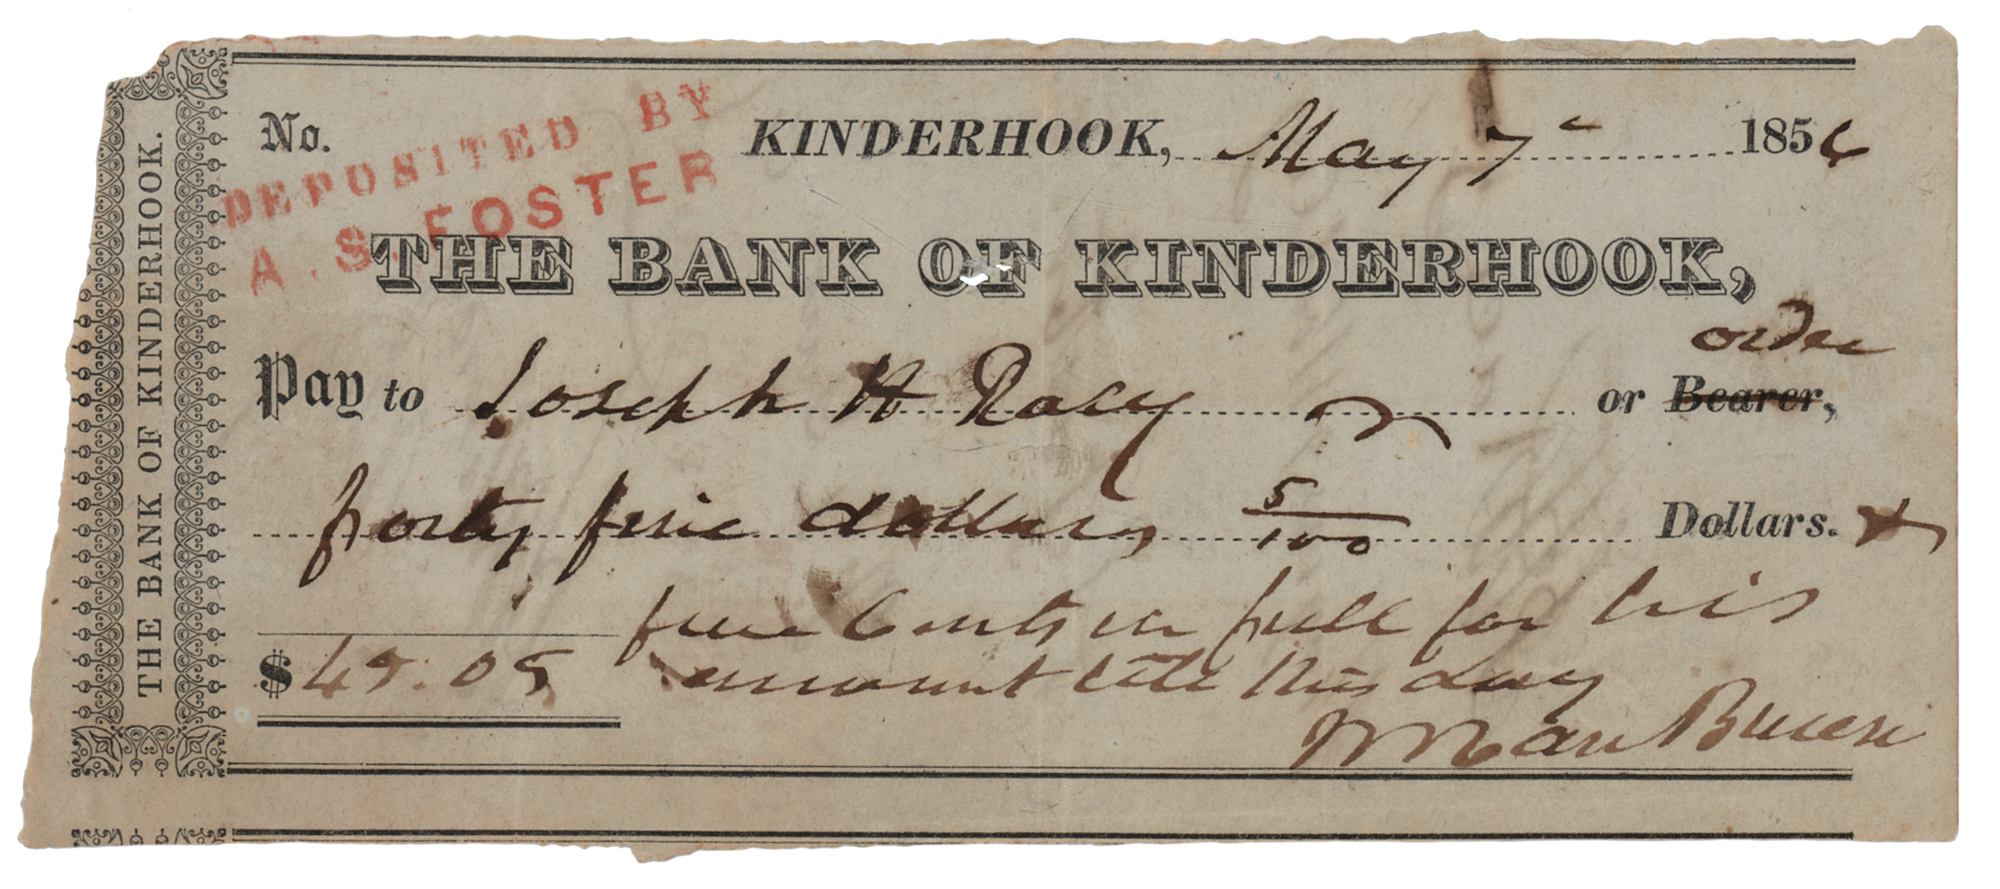 THE BANK OF KINDERHOOK.
DEPOSITED BY
A. S. FOSTER
No. KINDERHOOK, May 7 1856
THE BANK OF KINDERHOOK,
order
Pay to Joseph H Racy or Bearer,
forty five dollars 5/100 Dollars.
five Cents in full for his
$45.05 account till this day
M Van Buren